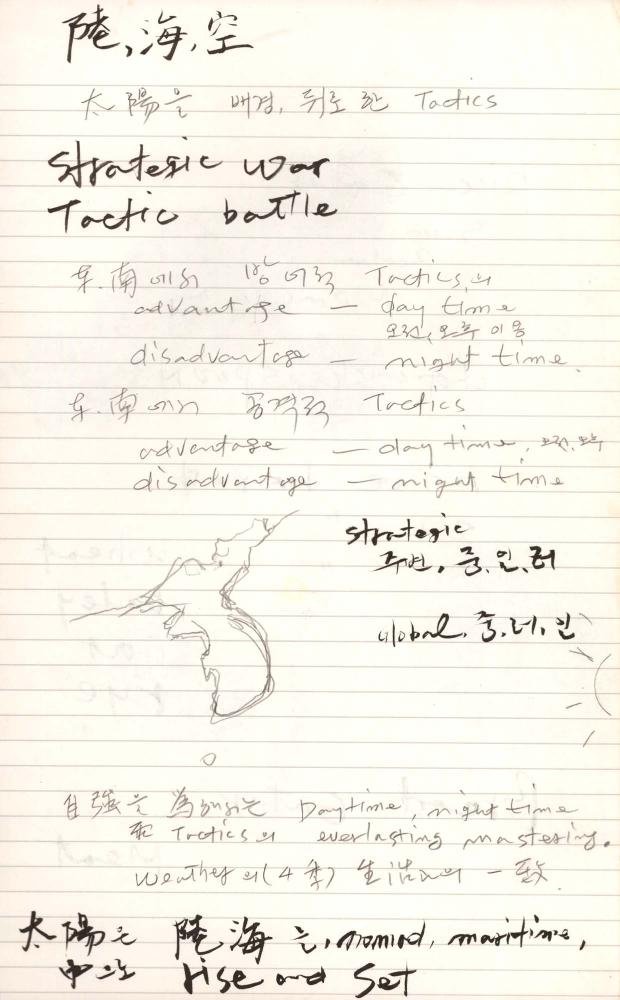 陸, 海, 空
太陽을 배경, 뒤로 한 Tactics
strategic war
Tactic battle
东.南에서 방어적 Tactics의
advantage — day time
오전, 오후 이용
disadvantage — night time.
东.南에서 공격적 Tactics
advantage — day time, 오전, 오후
disadvantage — night time
strategic
주변, 중, 인, 러
global, 중, 러, 인
自強을 為해서는 Daytime, night time
Tactics의 everlasting mastering.
weather의 (4季) 生活과의 一致
太陽은 陸海는, nomad, maritime,
中으로 rise and set